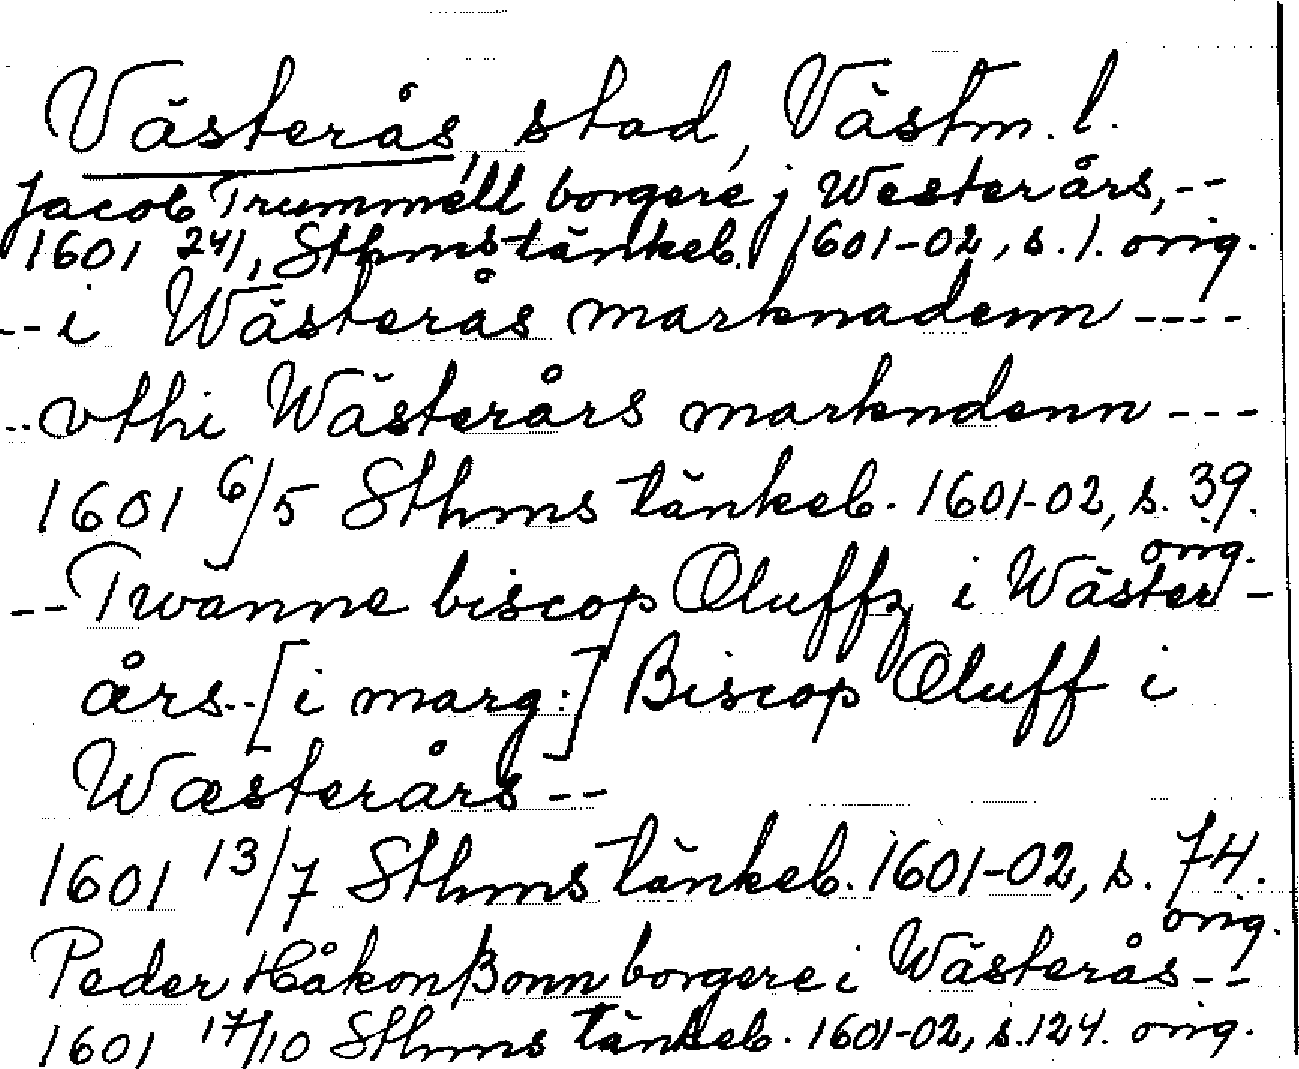 Västerås, stad, Västm. l.
Jacob Trummell borgere j Westerårs,--
1601 24/1, Sthms tänkeb. 1601-02, s. 1. orig.
--i Wästerås marknadenn ----
..vthi Wästerårs markndenn ---
1601 6/5 Sthms tänkeb. 1601-02, s. 39.
orig.
--Twänne biscop Oluffz i Wäster-
års..[i marg:] Biscop Oluff i
Wæsterårs--
1601 13/7 Sthms tänkeb. 1601-02, s. 74.
orig.
Peder Håkonßonn borgere i Wästerås--
1601 17/10 Sthms tänkeb. 1601-02, s. 124. orig.